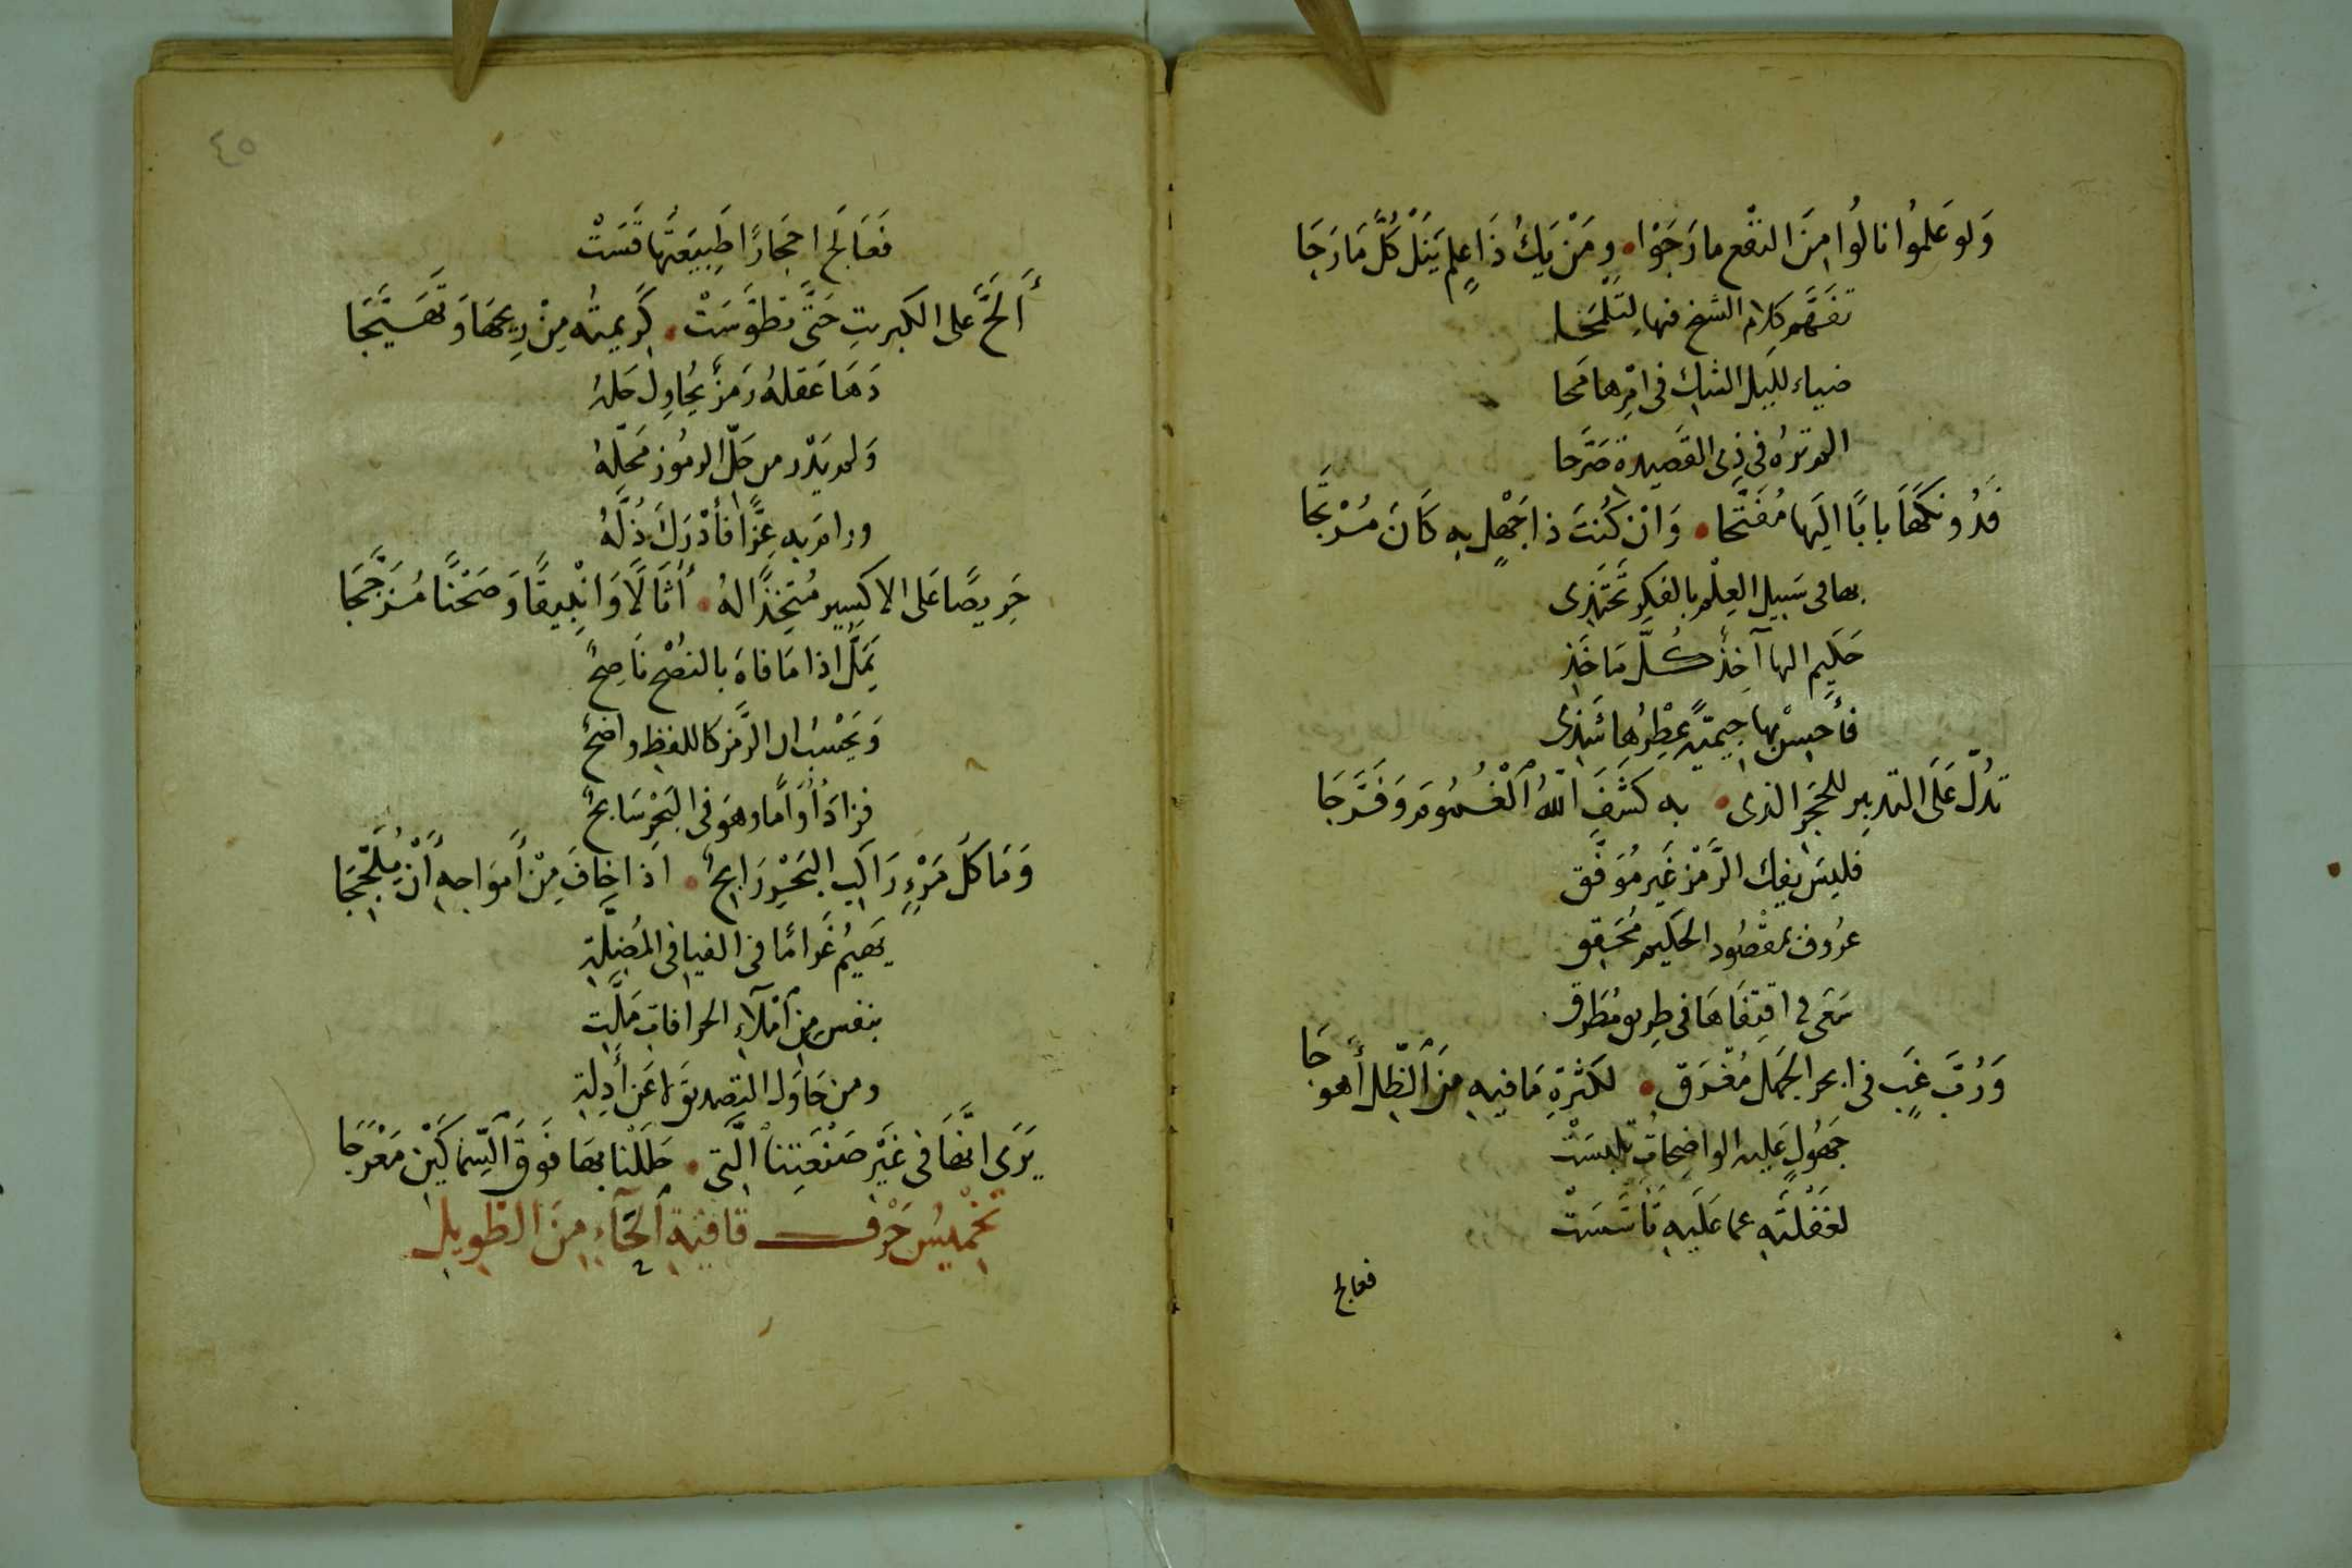 وَلو عَلموُا نالوُا مِنَ النفْع ما رَجَوْا • ومَنْ يَكُ ذَا عِلمٍ يَنَلْ كُلَّ مَا رَجَا
تفَهَّم كلام الشيخ فيها لِتَلمَحا
ضياء لليل الشك في امْرِها مَحا
الم ترهُ في ذِي القَصِيدة صَرَّحا
فَدُونكَهَا بابًا اليَها مُفَتَّحا • وَانْ كُنتَ ذا جَهْلٍ به كَانَ مُرْتجَّا
بها في سَبيل العِلْم بالفكر تَحْتَذي
حَكيم الها آخِذٌ كُلَّ مَاخَذِ
فأَحسِنْ بها جيميّةً عِطْرُها شَذِي
تدُلّ عَلَى التدبِير للحجَر الذى • به كَشَفَ اللهُ الْغُمُومَ وَفَرَّجَا
فليسَ يفك الرَّمْز غَير مُوَفَّق
عرُوف بمقصُود الحكيم مُحَقق
سَعَى في اقتِفَاهَا في طريق مُطَرق
وَرُبَّ غَبٍ في ابحر الجَهل مُغْرَقٍ • لكثرةِ مَا فيهِ مِنَ الظِل أَهوجَا
جَهُولٍ عَليه الواضِحاتُ تلبسَتْ
لغفْلَتَهِ عما عَلَيهِ تَأسَّسَتْ
فعالج
٤٥
فَعَالَج احجَارًا طَبِيعَتُها قَسَتْ
أَلَحَّ عَلى الكبريتِ حَتَّى تطوّسَتْ • كَريمتُه مِنْ رِيحهَا وَتَهَيَّجَا
دَهَا عَقلهُ رَمزٌ يُحاوِل حَلهُ
وَلم يَدْر من حَلّ الرمُوز مَحِلّهُ
ورام به عِزًّا فأدْرَكَ ذُلَّهُ
حَرِيصًا عَلى الاكسِير مُتخِذًا لهُ • أثَالًا وَانْبِيقًا وَصَحْنًا مُزَجَّجَا
يَمَلُّ اذا مَا فاهَ بالنصْحِ نَاصِحٌ
وَيَحْسبُ ان الرَّمز كاللفظِ واضحٌ
فزادَ أُوَامًا وهوَ في البَحْر سَابحٌ
وَمَا كلُ مَرْءٍ رَاكَبِ البَحْرِ رَابحٌ • اذا خَافَ مِنْ أَموَاجهِ أَنْ يُلَجِّجَا
يَهيمُ غَرامًا في الفيافي المُضِلَّةِ
بنفسٍ مِن امْلَاءِ الخرافاتِ مَلَّتِ
ومن حَاوَل التصديق لا عَن أَدِلةِ
يَرَى انَّهَا في غَيْر صَنْعَتِنا الَّتي • حَلَلْنا بهَا فَوقَ السِّمَاكَيْن مَعْرَجَا
تخْميسُ حَرْف قافيَةِ الحَاءِ مِنَ الطَويل